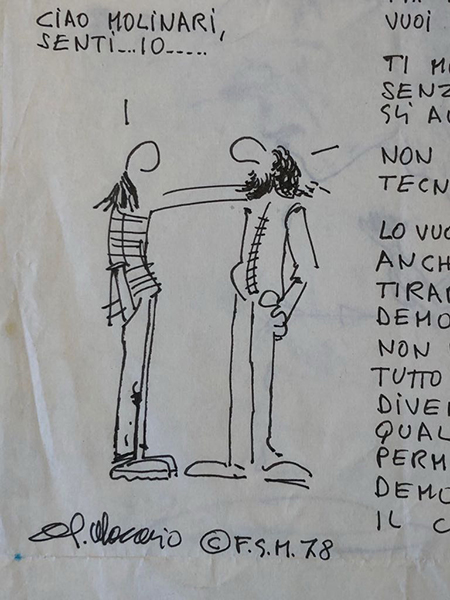 CIAO MOLINARI,
SENTI...IO.....
VUOI
TI M
SENZ
NON
TECN
LO VUO
ANCH
TIRAR
DEMO
NON
TUTTO
DIVER
QUAL
PERM
DEMO
IL C
© F.S.M. 78